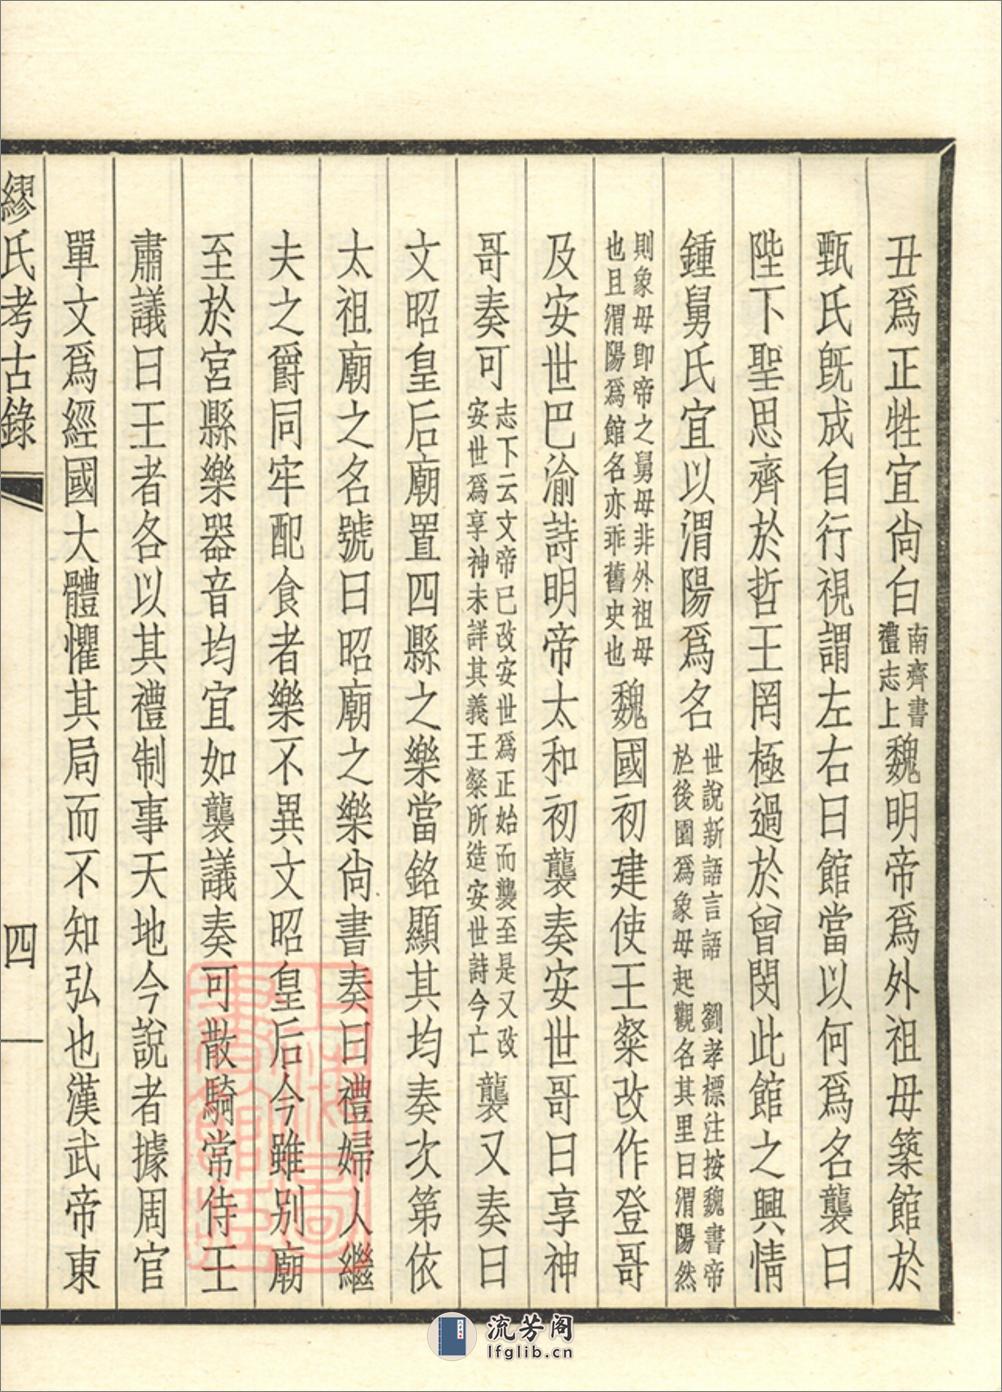 丑爲正牲宜尙白南齊書禮志上魏明帝爲外祖母築館於
甄氏旣成自行視謂左右曰館當以何爲名襲曰
陛下聖思齊於哲王罔極過於曾閔此館之興情
鍾舅氏宜以渭陽爲名世說新語言語 劉孝標注按魏書帝於後園爲象母起觀名其里曰渭陽然
則象母卽帝之舅母非外祖母也且渭陽爲館名亦乖舊史也魏國初建使王粲改作登哥
及安世巴渝詩明帝太和初襲奏安世哥曰享神
哥奏可志下云文帝已改安世爲正始而襲至是又改安世爲享神未詳其義王粲所造安世詩今亡襲又奏曰
文昭皇后廟置四縣之樂當銘顯其均奏次第依
太祖廟之名號曰昭廟之樂尙書奏曰禮婦人繼
夫之爵同牢配食者樂不異文昭皇后今雖別廟
至於宮縣樂器音均宜如襲議奏可散騎常侍王
肅議曰王者各以其禮制事天地今說者據周官
單文爲經國大體懼其局而不知弘也漢武帝東
繆氏考古錄
四
流芳阁
lfglib.cn